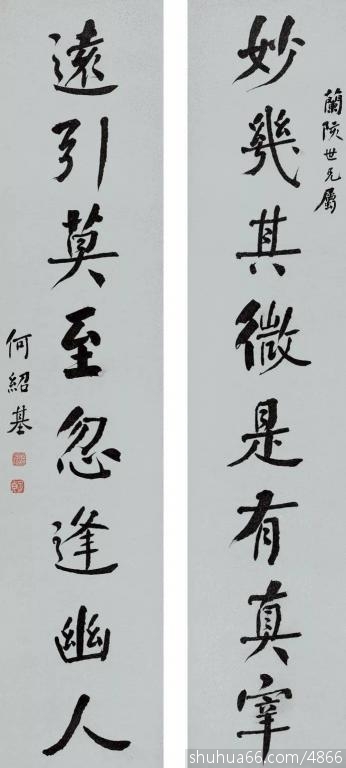 蘭陔世兄屬
妙幾其微是有真宰
遠引莫至忽逢幽人
何紹基
shuhua66.com/4866